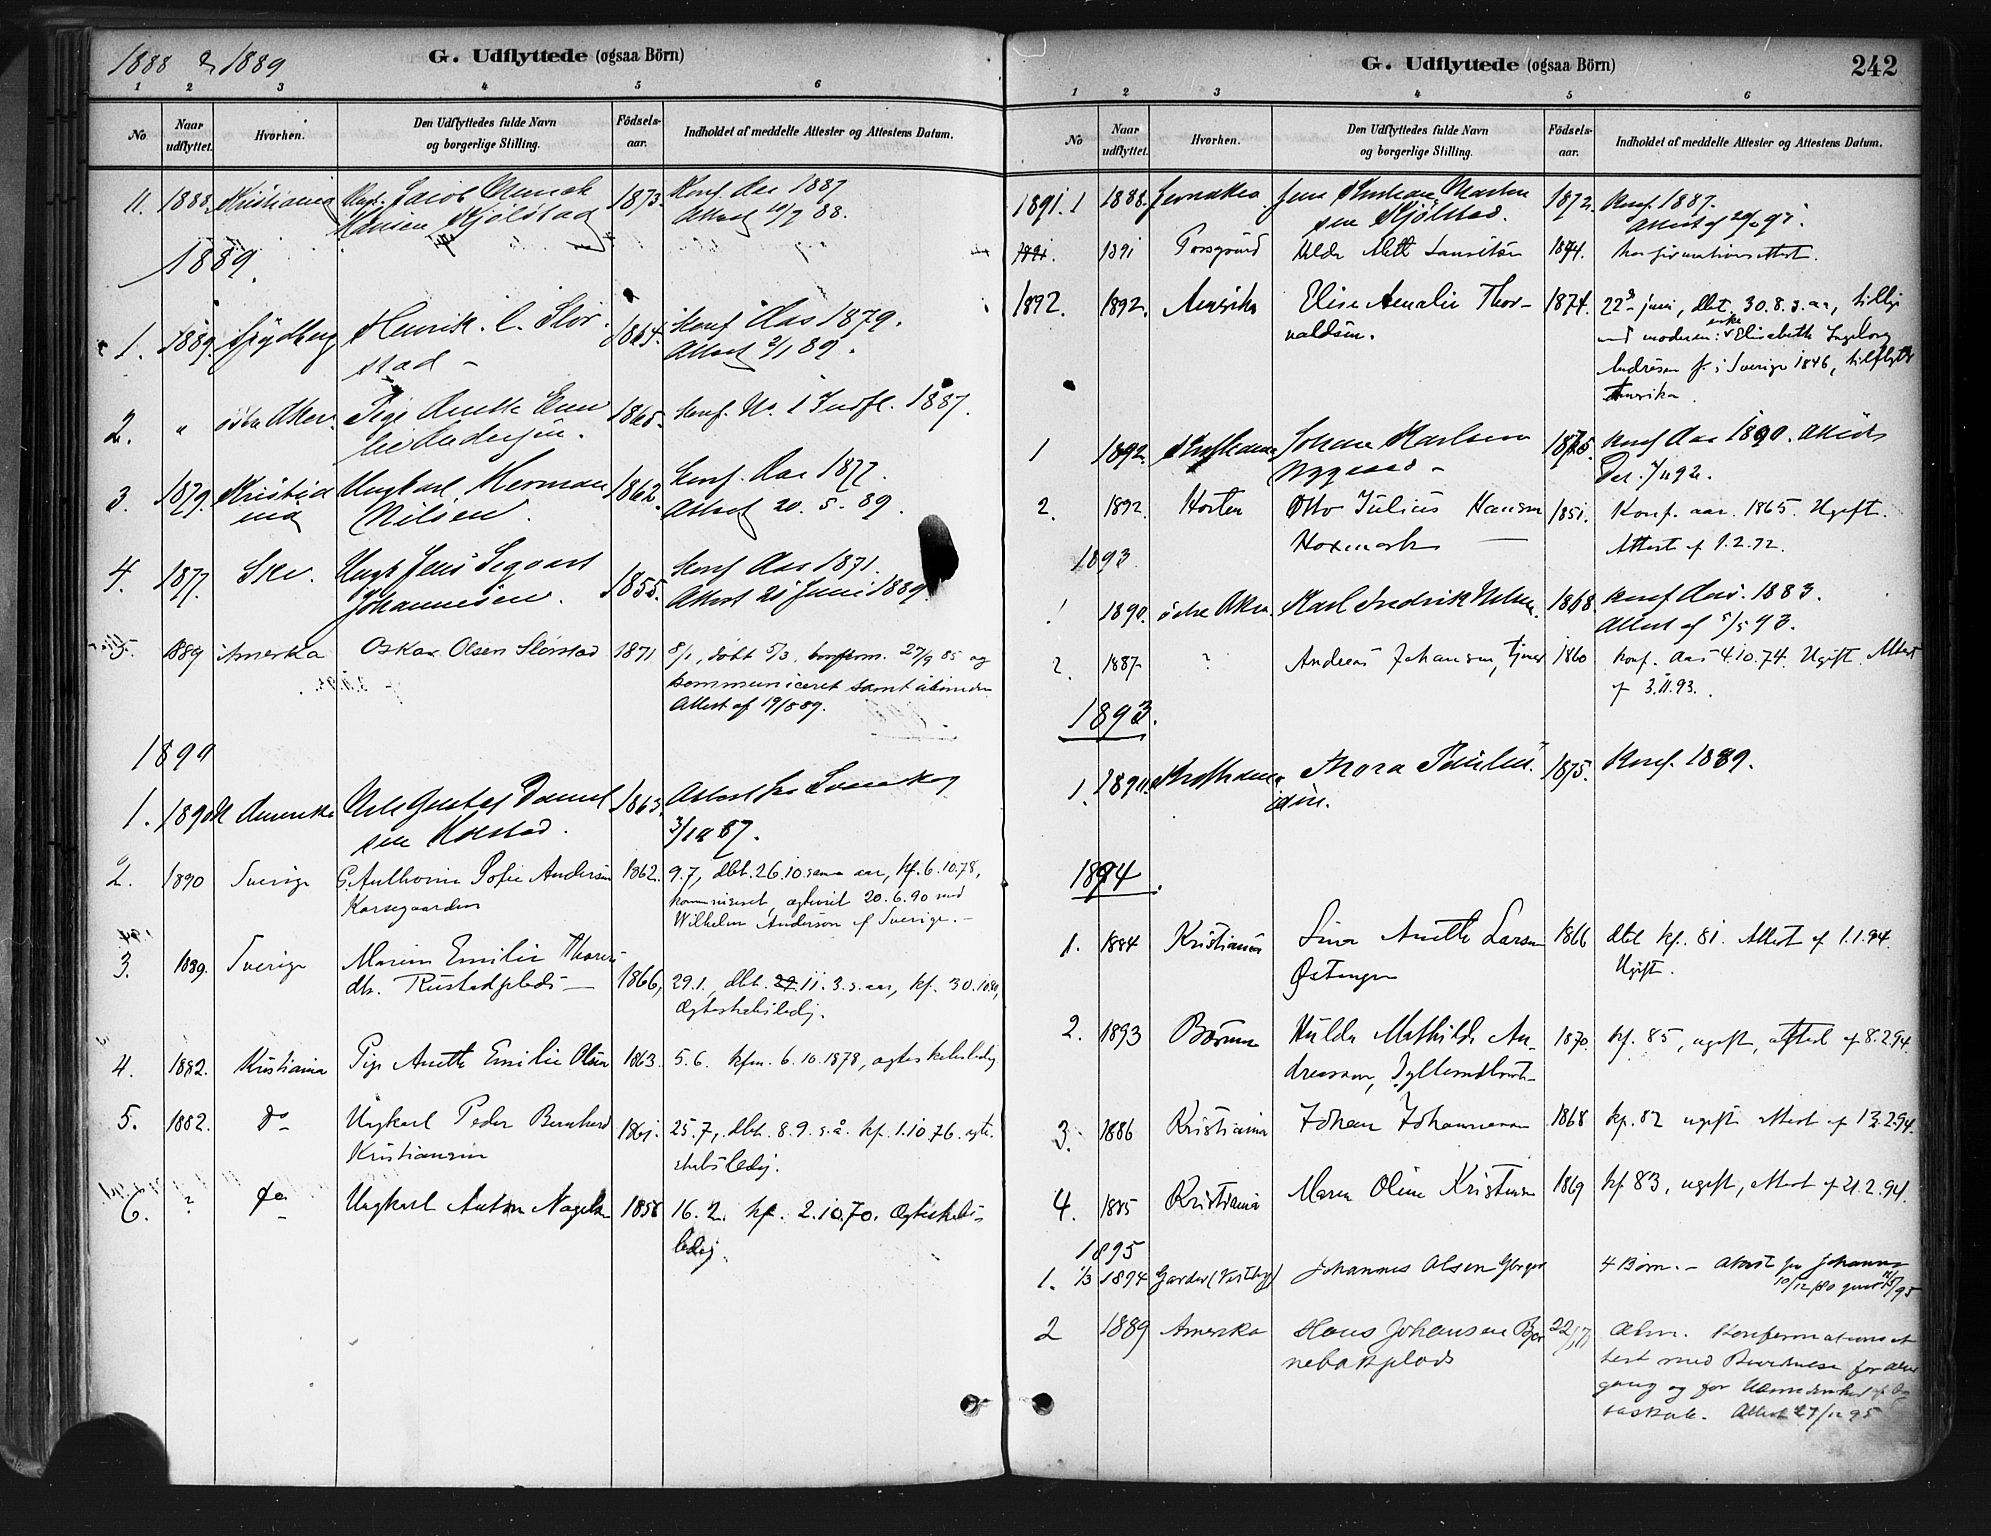 1888 & 1889
G. Udflyttede (ogsaa Börn)
1 2 3 4 5 6
No
Naar udflyttet.
Hvorhen.
Den Udflyttedes fulde Navn og borgerlige Stilling.
Födsels-aar.
Indholdet af meddelte Attester og Attestens Datum.
11. 1888 Kristiania Ungk. Jacob 1873 Konf. Aas 1887
Hansen Kjølstad Attest 10/7 88.
1889.
1. 1889 Spydberg Henrik. C. Slor- 1864. Konf. Aas 1879.
stad - Attest 2/1 89.
2. " Aker. Pige Anette Emi 1865. Konf. No. 1 Indfl. 1887.
lie Andersen.
3. 1879. Kristia Ungkarl. Herman 1862. Konf. Aas 1877
nia Nilsen. Attest 20. 5. 89.
4. 1877. Ski. Ungk. Jens Sigvart 1855. Konf. Aas 1871.
Johannesen. Attest 21 Juni 1889.
5. 1889 Amerika Oskar Olsen Slorstad 1871 8/1, døbt 5/3, konfirm. 27/9 85 og
kommuniceret samt
Attest af 19/8 89.
1890
1. 1890 N Amerika Nils Gustaf Daniel 1863. Attest
sen 3/10 87.
2. 1890 Sverige G. Anthonie Sofie Andersen 1862. 9.7, dbt. 26.10 sama aar, kf. 6.10.78,
Korsegaarden kommuniseret, ægteviet 20.6.90 med
Wilhelm Anderson af Sverige. -
3. 1889. Sverige Maren Emilie Thores
dtr. Rustadplads - 1866, 29.1., dbt. 11.3. s. aar, kf. 30.10.80,
Ægteskabsledig.
4. 1882. Kristiania Pige Anette Emilie Olsen 1863. 5.6. kfm. 6.10.1878, ægteskabsledig
5. 1882. do Ungkarl Peder Bernhard 1861. 25.7, dbt. 8.9. s.å. kf. 1.10.76. ægte-
Kristiansen skabsledig.
6. ? do Ungkarl Anton Nagelsen 1858 16.2. kf. 2.10.70. Ægteskabs-
ledig.
G. Udflyttede (ogsaa Börn)
242
1 2 3 4 5 6
No
Naar udflyttet.
Hvorhen.
Den Udflyttedes fulde Navn og borgerlige Stilling.
Födsels-aar.
Indholdet af meddelte Attester og Attestens Datum.
1891. 1 1888. Jens Martin 1872. Konf. 1887.
sen Kjølstad. Attest af
1891 Porsgrund Hilda Alett Lauritsen 1874. Konfirmationsattest.
1892. 1892. Amerika Elise Amalie Thor- 1874. 22de juni, dbt. 30.8. s. aa, tillige
valdsen. med moderen: enke Elisabeth Ingeborg
Andresen f. i Sverige 1846, tilflyttet
Amerika.
1 1892. Johan Karlsen 1875. Konf Aas 1890. Attest
Nygaard - 92.
2. 1892. Horten Otto Julius Hansen 1851. Konf. aar. 1865. Ugift.
Attest af 9.2.92.
1893
1 1890. østre Aker. Karl Fredrik Nilsen. 1868. Konf Aas. 1883.
Attest af 5/5 93.
2. 1887. ? Andreas Johansen, tjener 1860 konf. Aas 4.10.74. Ugift. Attest
af 3.11.93.
1893.
1. 1890. Thora Paulin 1875. Konf. 1889.
1894.
1. 1884 Kristiania Lina Anette Larsen 1866 dbt kf. 81. Attest af 1.1.94.
Østengen Ugift.
2. 1893 Bærum Hulda Mathilde An- 1870. kf. 85, ugift, attest af 8.2.94.
dreassen,
3. 1886 Kristiania Johan Johannesen 1868 kf. 82 ugift attest af 13.2.94.
4. 1885 Kristiania Maren Oline Kristiansen 1869 kf 83, ugift, attest af 21.2.94.
1895
1. 1/3 1894 Garder (Vestby) Johannes Olsen 4 Børn. - Attest for Johannes
10/12/80
2 1889 Amerika Hans Johansen Bjør 22/ Alm. Konfirmationsat
nebekplads test med Bevidnelse for
gang og for
Attest 27/12 95